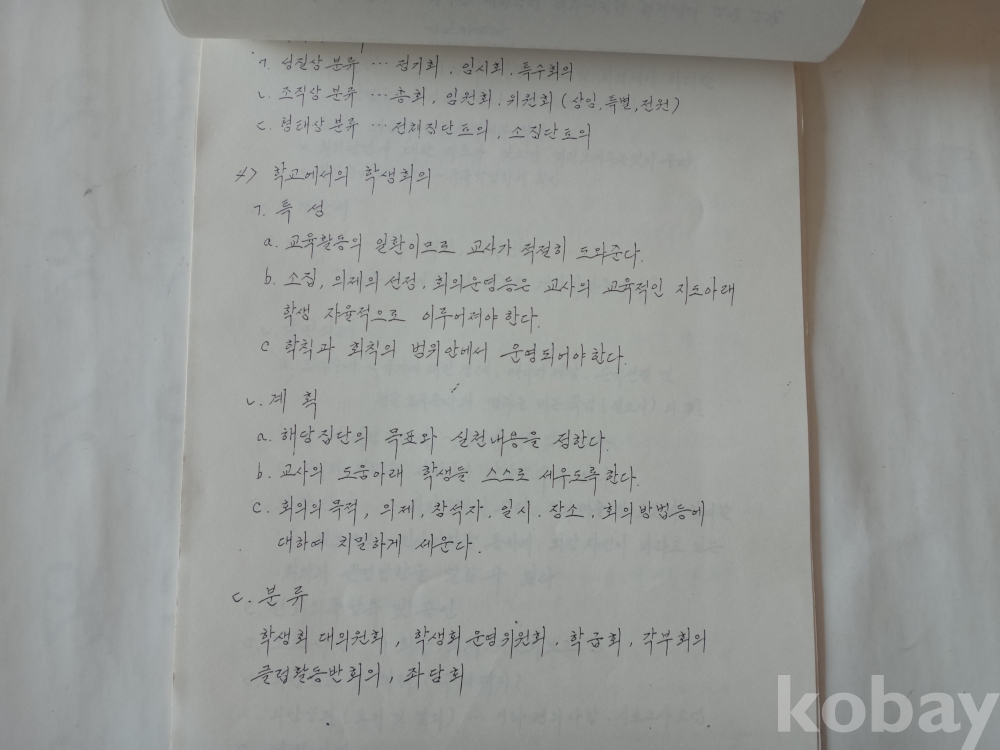 ㄱ. 성질상 분류 … 정기회. 임시회. 특수회의
ㄴ. 조직상 분류 … 총회, 임원회. 위원회 (상임, 특별, 전원)
ㄷ. 형태상 분류 … 전체집단토의, 소집단토의
4> 학교에서의 학생회의
ㄱ. 특 성
a. 교육활동의 일환이므로 교사가 적절히 도와준다.
b. 소집, 의제의 선정, 회의운영등은 교사의 교육적인 지도아래
학생 자율적으로 이루어져야 한다.
c 학칙과 회칙의 범위안에서 운영되어야 한다.
ㄴ. 계 획
a. 해당집단의 목표와 실천내용을 정한다.
b. 교사의 도움아래 학생들 스스로 세우도록 한다.
c. 회의의 목적, 의제, 참석자. 일시. 장소. 회의 방법등에
대하여 치밀하게 세운다.
ㄷ. 분류
학생회 대의원회, 학생회 운영위원회. 학급회, 각부회의
클럽활동반회의, 좌담회
kobay